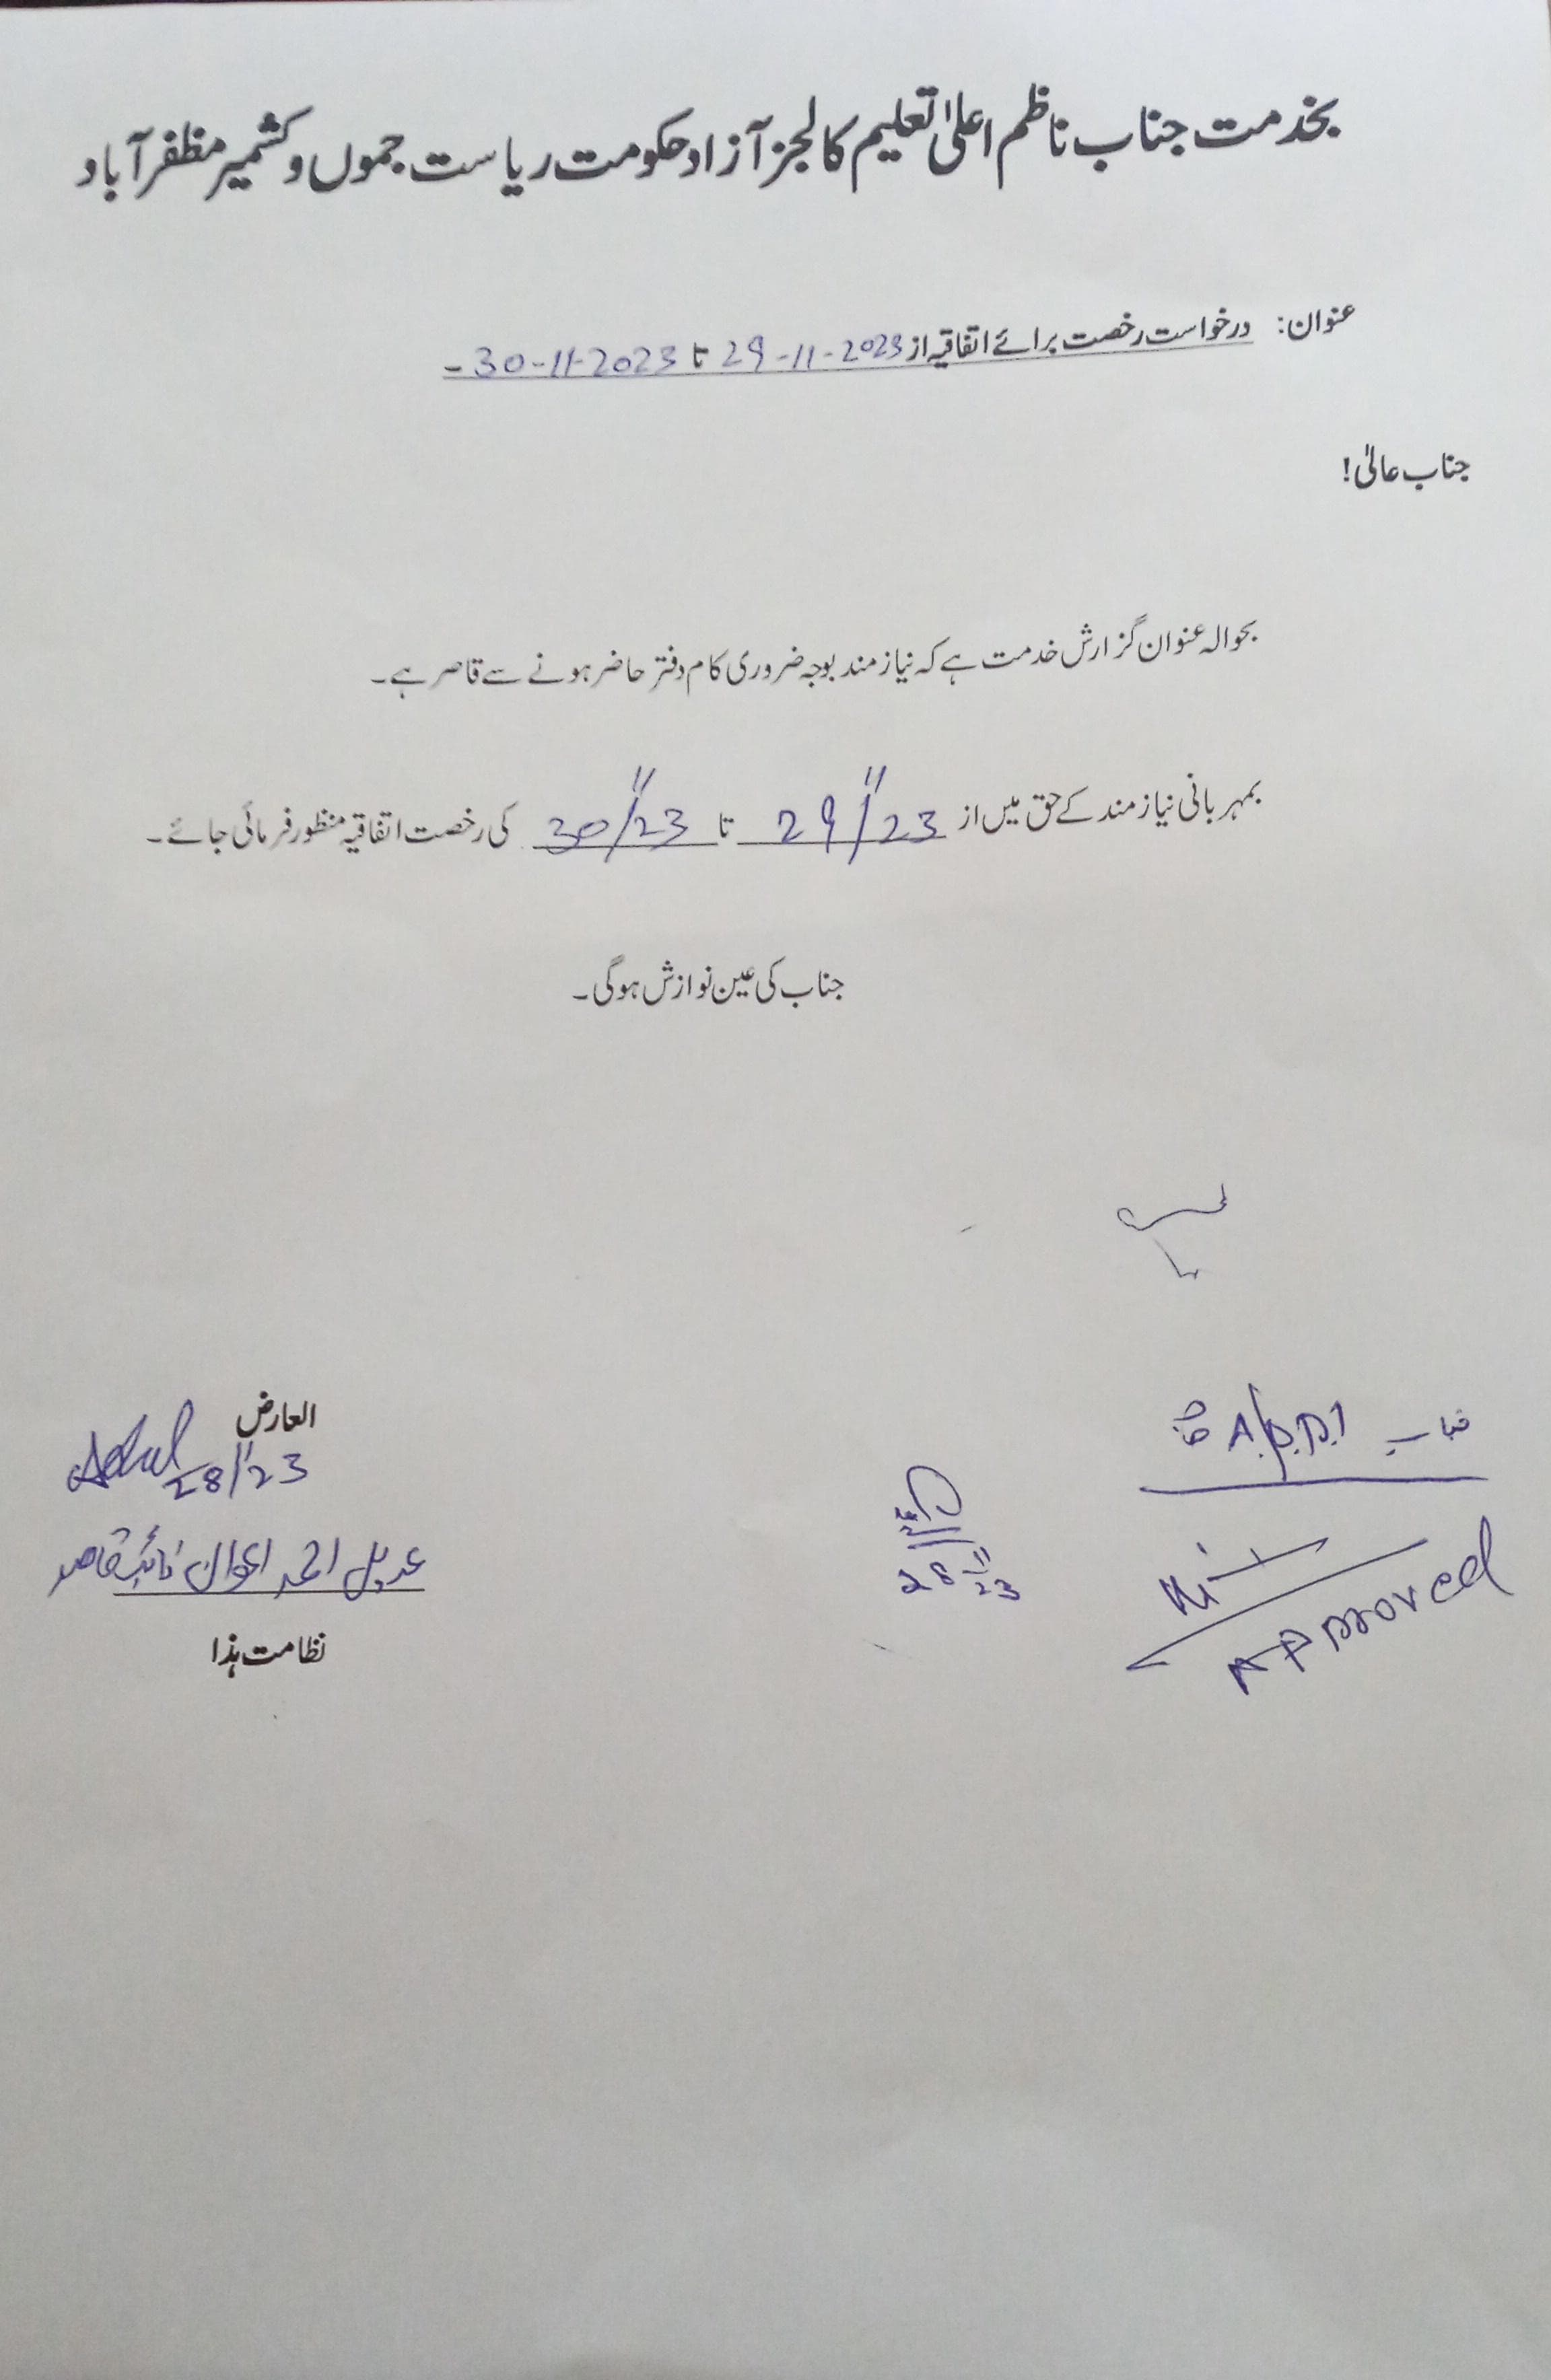 بخدمت جناب ناظم اعلیٰ تعلیم کالجز آزاد حکومت ریاست جموں و کشمیر مظفر آباد
عنوان: درخواست رخصت برائے اتفاقیہ از 29-11-2023 تا 30-11-2023 ۔
جناب عالیٰ!
بحوالہ عنوان گزارش خدمت ہے کہ نیاز مند بوجہ ضروری کام دفتر حاضر ہونے سے قاصر ہے۔
بمہربانی نیاز مند کے حق میں از 29/11/23 تا 30/11/23 کی رخصت اتفاقیہ منظور فرمائی جائے۔
جناب کی عین نوازش ہوگی۔
العارض
28/11/23
عدیل احمد اعوان نائب قاصد
نظامت ہذا
جناب
28/11/23
Approved